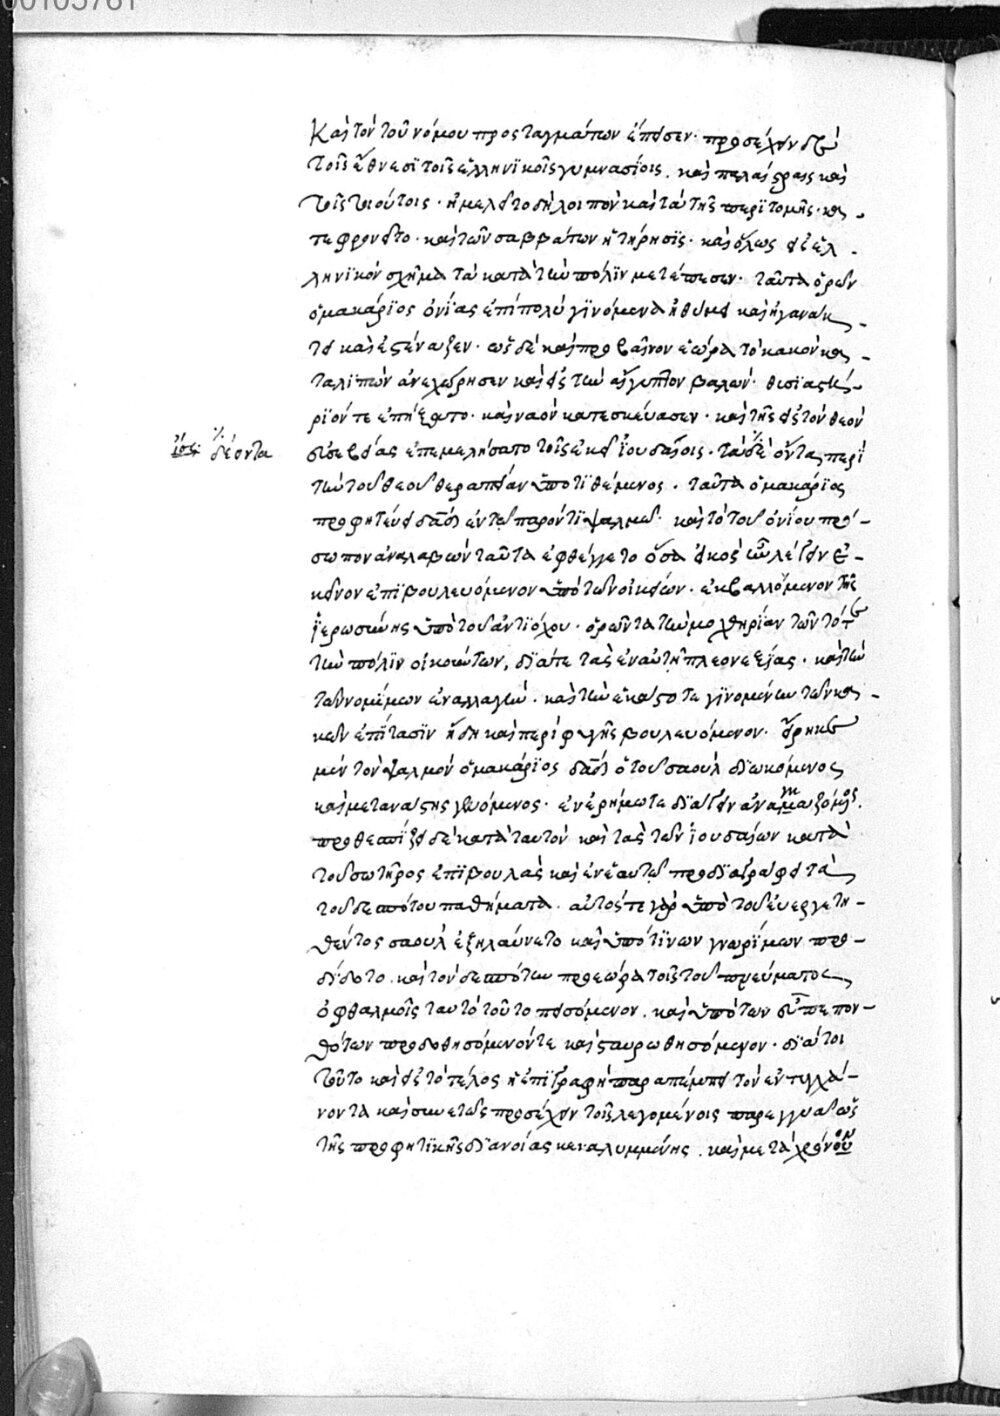 00105761
καὶ τῶν τοῦ νόμου προσταγμάτων ἔπεισεν· προσεῖχον δὲ
τοῖς ἔθνεσι τοῖς ἑλληνικοῖς γυμνασίοις. καὶ παλαίστραις καὶ
τοῖς τοιούτοις· ἠμελεῖτο δὴ λοιπὸν καὶ τὰ τῆς περιτομῆς· κα-
τεφρονεῖτο· καὶ τῶν σαββάτων ἡ τήρησις· καὶ ὅλως εἰς ἑλ-
ληνικὸν σχῆμα τὰ κατὰ τὴν πόλιν μετέπεσεν· ταῦτα ὁρῶν
ὁ μακάριος ὀνίας ἐπιπολὺ γινόμενα ἠθύμει καὶ ἠγανάκ-
τει καὶ ἐστέναξεν· ὡς δὲ καὶ προβαῖνον ἑώρα τὸ κακὸν κα-
ταλιπὼν ἀνεχώρησεν καὶ εἰς τὴν αἴγυπτον βαλών· θυσιαστή-
ριόν τε ἐπήξατο· καὶ ναὸν κατεσκεύασεν· καὶ τῆς εἰς τὸν θεὸν
ἴσως δέοντα
εὐσεβείας ἐπεμελήσατο τοῖς ἐκεῖ ἰουδαίοις· τὰ δὲ ὄντας περὶ
τὴν τοῦ θεοῦ θεραπείαν ὑποτιθέμενος. ταῦτα ὁ μακάριος
προφητεύει δᾱδ ἐν τῷ παρόντι ψαλμῷ· καὶ τὸ τοῦ ὀνίου πρό-
σωπον ἀναλαβὼν ταῦτα ἐφθέγγετο ὅσα εἰκὸς ἦν λέγειν ἐ-
κεῖνον ἐπιβουλευόμενον ὑπὸ τῶν οἰκείων. ἐκβαλλόμενον τῆς
ἱερωσύνης ὑπὸ τοῦ ἀντιόχου· ὁρῶντα τὴν μοχθηρίαν τῶν τότε
τὴν πόλιν οἰκούντων, διά τε τὰς ἐν αὐτῇ πλεονεξίας. καὶ τὴν
τῶν νομίμων ἐναλλαγήν. καὶ τὴν ἑκάστοτε γινομένων τῶν κα-
κῶν ἐπίτασιν ἤδη καὶ περὶ φυγῆς βουλευόμενον· εἴρηκε
μὲν τὸν ψαλμὸν ὁ μακάριος δᾱδ ὑπὸ τοῦ σαοὺλ διωκόμενος
καὶ μετανάστης γενόμενος· ἐν ἐρήμῳ τε διάγειν ἀναγκαζόμενος.
προθεσπίζει δὲ κατὰ ταυτὸν καὶ τὰς τῶν ἰουδαίων κατὰ
τοῦ σωτῆρος ἐπιβουλὰς καὶ ἐν ἑαυτῷ προδιαγράφει τὰ
τοῦ δεσπότου παθήματα. αὐτός τε γὰρ ὑπὸ τοῦ εὐεργετη-
θέντος σαοὺλ ἐξηλαύνετο καὶ ὑπό τινων γνωρίμων προ-
δίδοτο. καὶ τὸν δεσπότην προεώρα τοῖς τοῦ πνεύματος
ὀφθαλμοῖς ταυτὸ τοῦτο πεισόμενον. καὶ ὑπὸ τῶν εὖ πεπον-
θότων προδοθησόμενόν τε καὶ σταυρωθησόμενον. διά τοι
τοῦτο καὶ εἰς τὸ τέλος ἡ ἐπιγραφὴ παραπέμπει τὸν ἐντυγχά-
νοντα καὶ συνετῶς προσέχειν τοῖς λεγομένοις παρεγγυᾷ ὡς
τῆς προφητικῆς διανοίας κεκαλυμμένης. καὶ μετὰ χρόνον